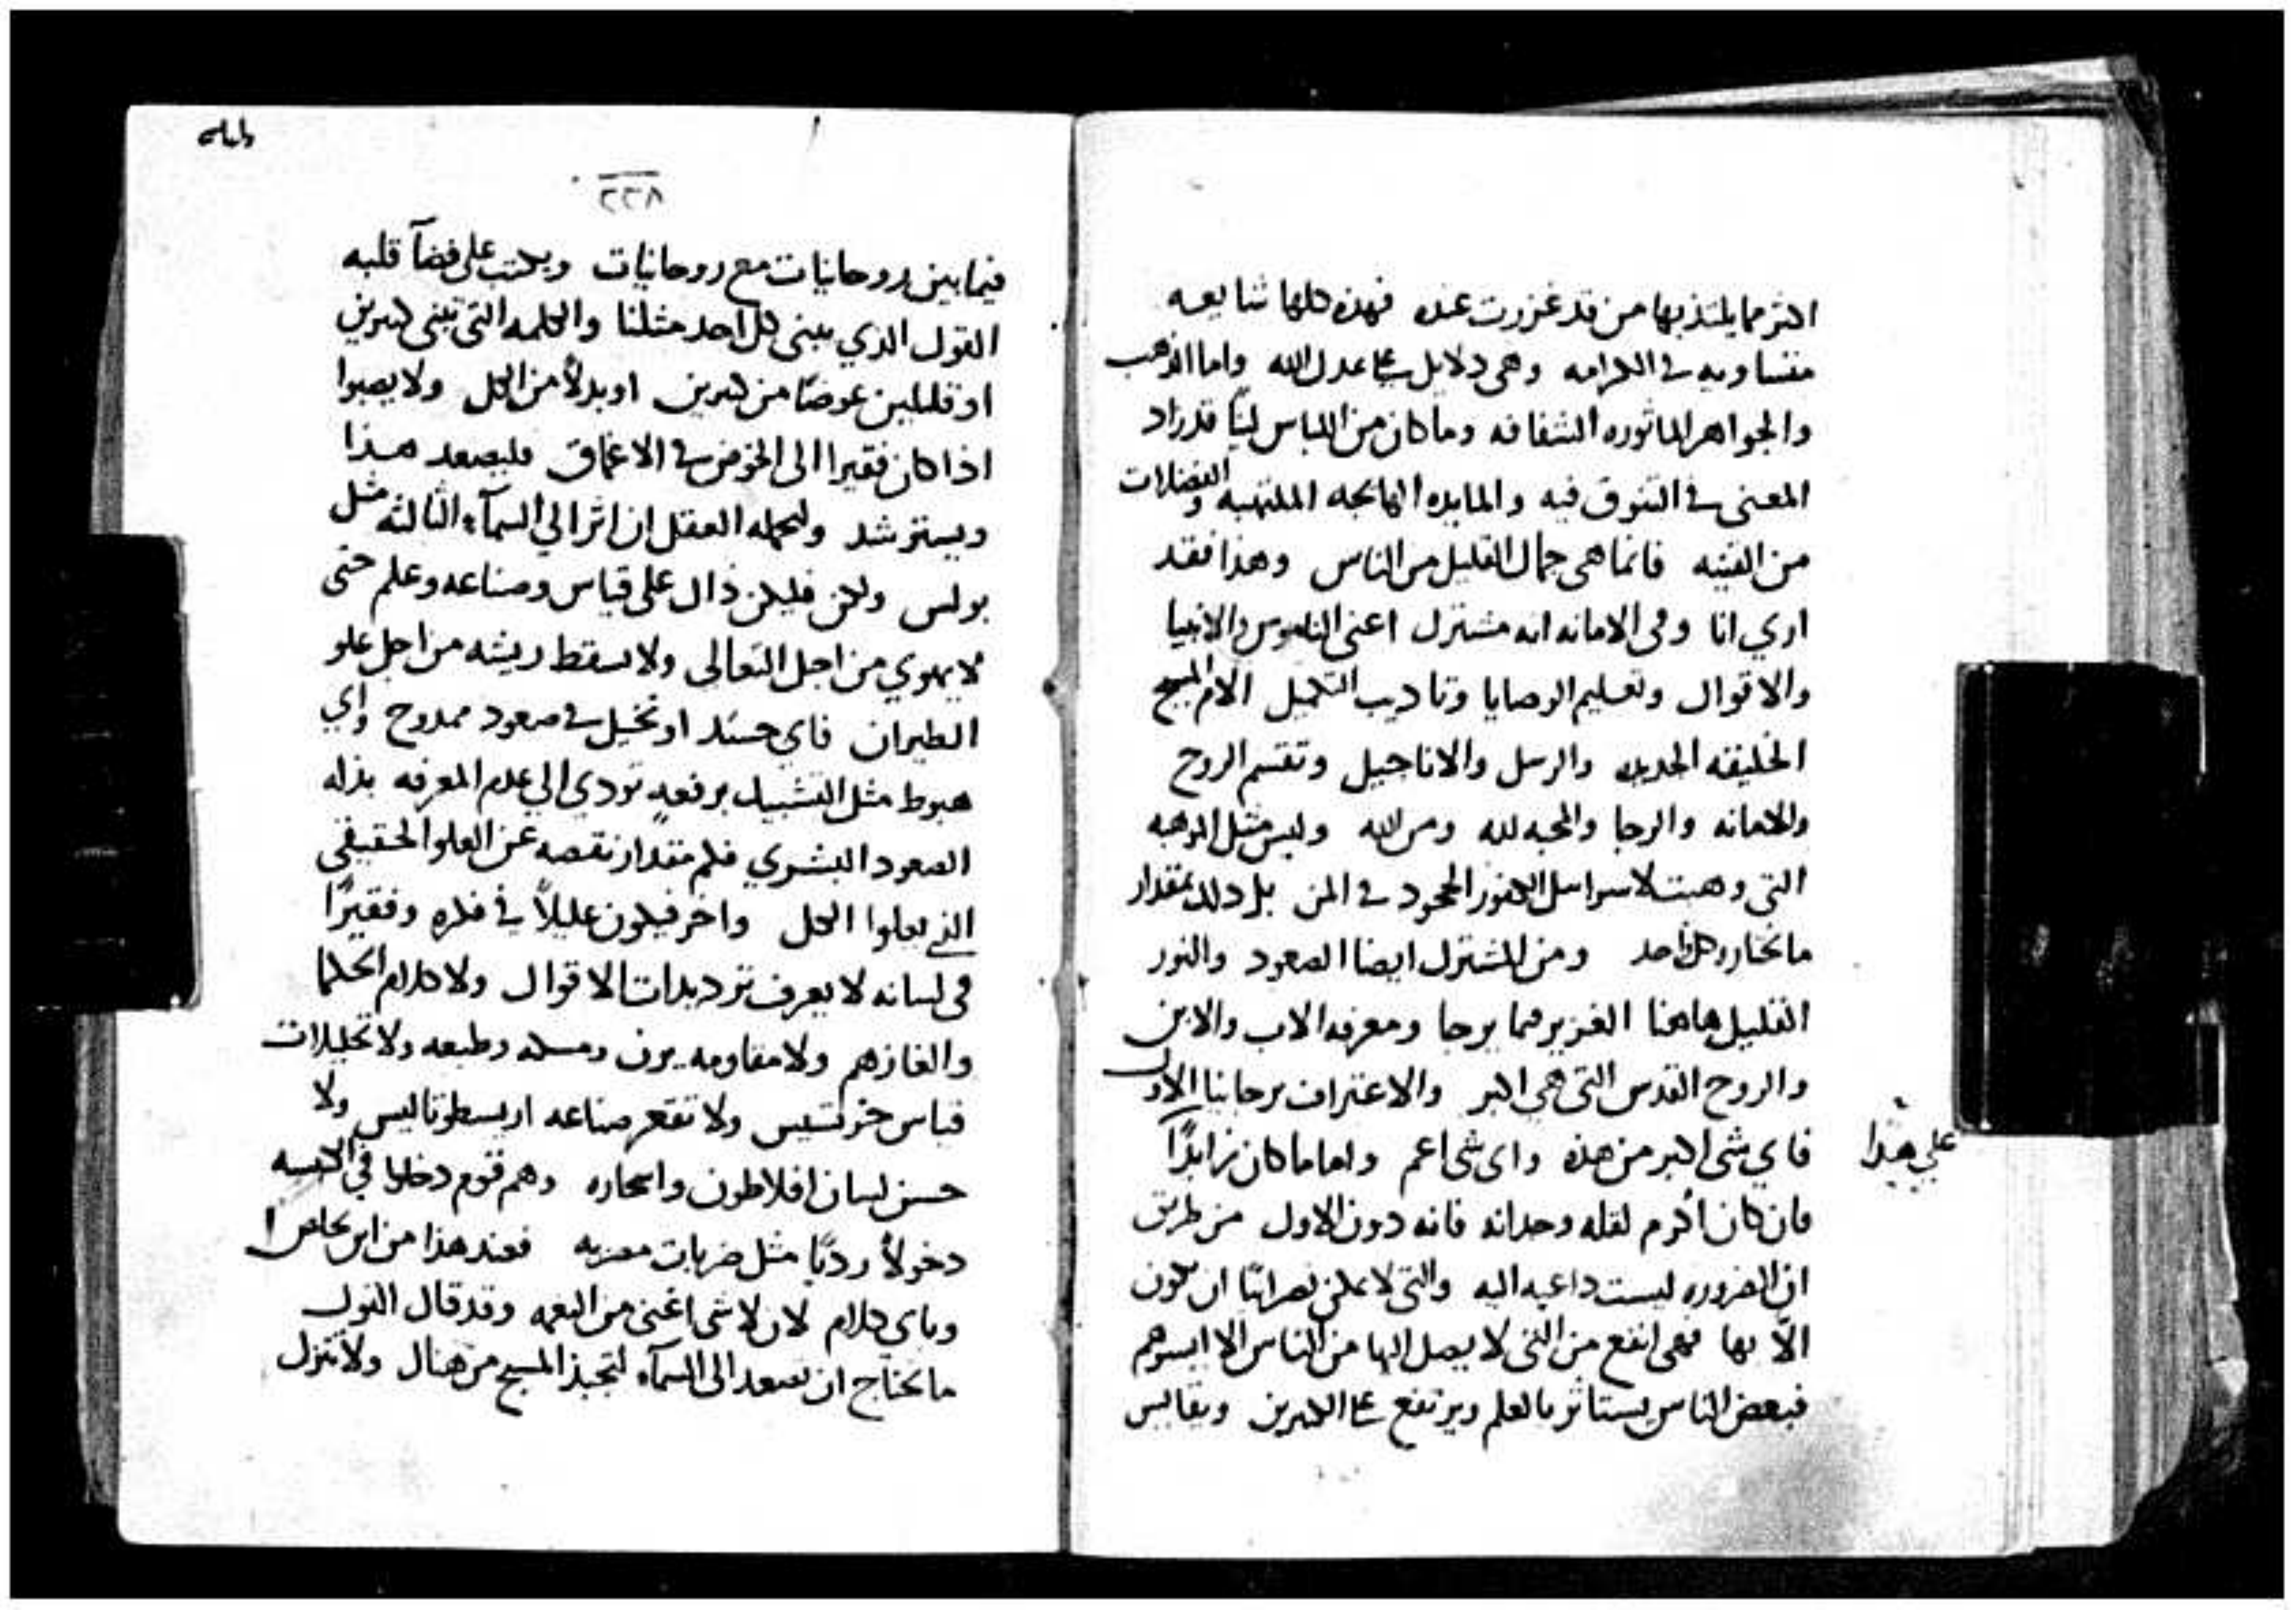 اكثر مما يلتذ بها من قد غزرت عنده فهذه كلها شايعه
متساويه في الكرامه وهى دلايل على عدل الله واما الذهب
والجواهر الماثوره الشفافه وما كان من اللباس لينًا قد زاد
المعنى في التنوق فيه والمايده الهايجه الملتهبه والفضلات
من القنيه فانما هى جمال القليل من الناس وهذا فقد
اري انا وفى الامانه انه مشترك اعنى الناموس والانبيا
والاقوال وتعليم الوصايا وتاديب التكميل الام المسيح
الخليقه الجديده والرسل والاناجيل وتقسم الروح
والامانه والرجا والمحبه لله ومن الله وليس مثل الموهبه
التى وهبت لاسراسل الكفور الجحود في المن بل ذلك بمقدار
ما يختاره كل احد ومن المشترك ايضا الصعود والنور
القليل هاهنا الغزير فيما يرجا ومعرفه الاب والابن
والروح القدس التى هى اكبر والاعتراف برجاينا الاول
فاي شى اكبر من هذه واى شى اعم واما ما كان زايدًا
على هذا
فان كان اكرم لقله وحدانه فانه دون الاول من طريق
ان الضروره ليست داعيه اليه والتى لا يمكن نصرانيًا ان يكون
الّا بها فهى انفع من التى لا يصل اليها من الناس الا ايسرهم
فبعض الناس يستاثر بالعلم ويرتفع على الكثيرين ويقايس
٢٢٨
فيما بين روحانيات مع روحانيات ويكتب على فضآ قلبه
القول الذي يبنى كل احد مثلنا والكلمه التى تبنى كثيرين
او قليلين عوضًا من كثيرين او بدلاً من الكل ولا يصبوا
اذا كان فقيرا الى الخوض في الاعماق فليصعد هذا
ويسترشد وليحمله العقل ان اثر الي السمآء الثالثه مثل
بولس ولكن فليكن ذاك على قياس وصناعه وعلم حتى
لا يهوي من اجل التعالى ولا يسقط ريشه من اجل علو
الطيران فاي حسد او تخيل في صعود ممدوح واي
هبوط مثل التشبيك برفعه تودي الي علم المعرفه بذله
الصعود البشري فلم مقدار نقصه عن العلو الحقيقى
الذي يعلوا الكل واخر فيكون عليلاً في فكره وفقيرًا
فى لسانه لا يعرف ترديدات الاقوال ولا كلام الحكما
والغازهم ولا مقاومه يرن ومسكه وطبعه ولا تحليلات
قياس خرتسيس ولا تقعر صناعه اريسطوتاليس ولا
حسن لسان افلاطون واسحاره وهم قوم دخلوا في الكنيسه
دخولاً رديًا مثل ضربات مصريه فعند هذا من اين يخلص
وباي كلام لان لا شى اغنى من النعمه وقد قال القول
ما يحتاج ان تصعد الى السمآء لتجبذ المسيح من هناك ولا تنزل